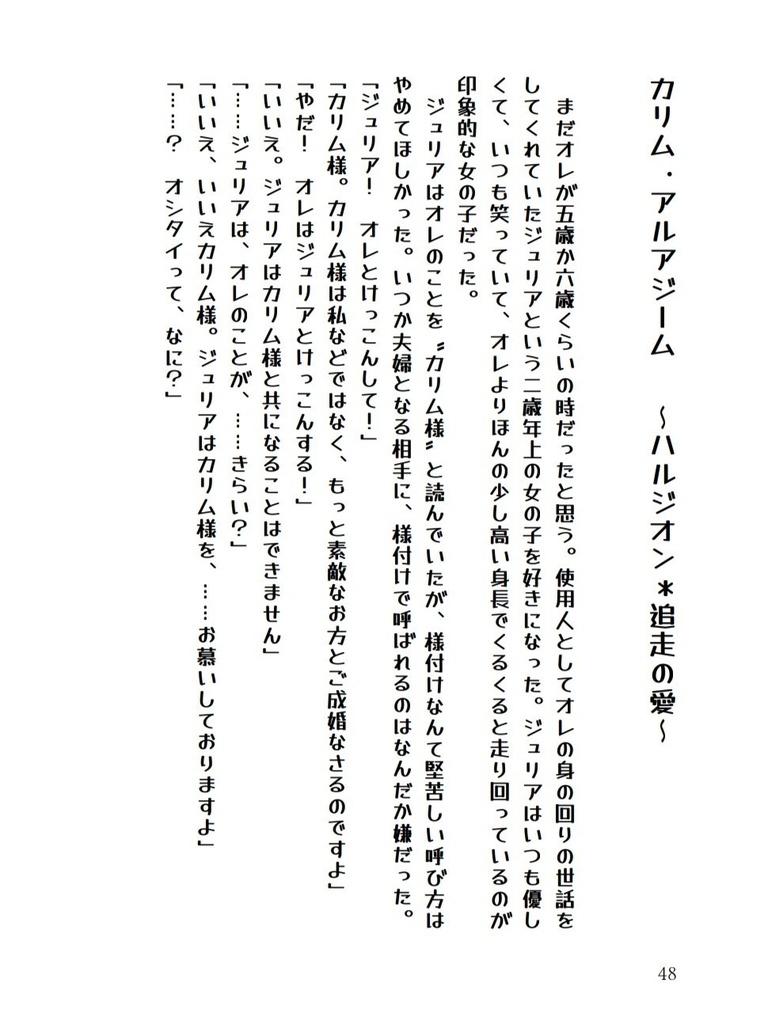 カリム・アルアジーム　～ハルジオン＊追走の愛～
　まだオレが五歳か六歳くらいの時だったと思う。使用人としてオレの身の回りの世話を
してくれていたジュリアという二歳年上の女の子を好きになった。ジュリアはいつも優し
くて、いつも笑っていて、オレよりほんの少し高い身長でくるくると走り回っているのが
印象的な女の子だった。
　ジュリアはオレのことを〝カリム様〟と読んでいたが、様付けなんて堅苦しい呼び方は
やめてほしかった。いつか夫婦となる相手に、様付けで呼ばれるのはなんだか嫌だった。
「ジュリア！　オレとけっこんして！」
「カリム様。カリム様は私などではなく、もっと素敵なお方とご成婚なさるのですよ」
「やだ！　オレはジュリアとけっこんする！」
「いいえ。ジュリアはカリム様と共になることはできません」
「……ジュリアは、オレのことが、……きらい？」
「いいえ、いいえカリム様。ジュリアはカリム様を、……お慕いしておりますよ」
「……？　オシタイって、なに？」
48